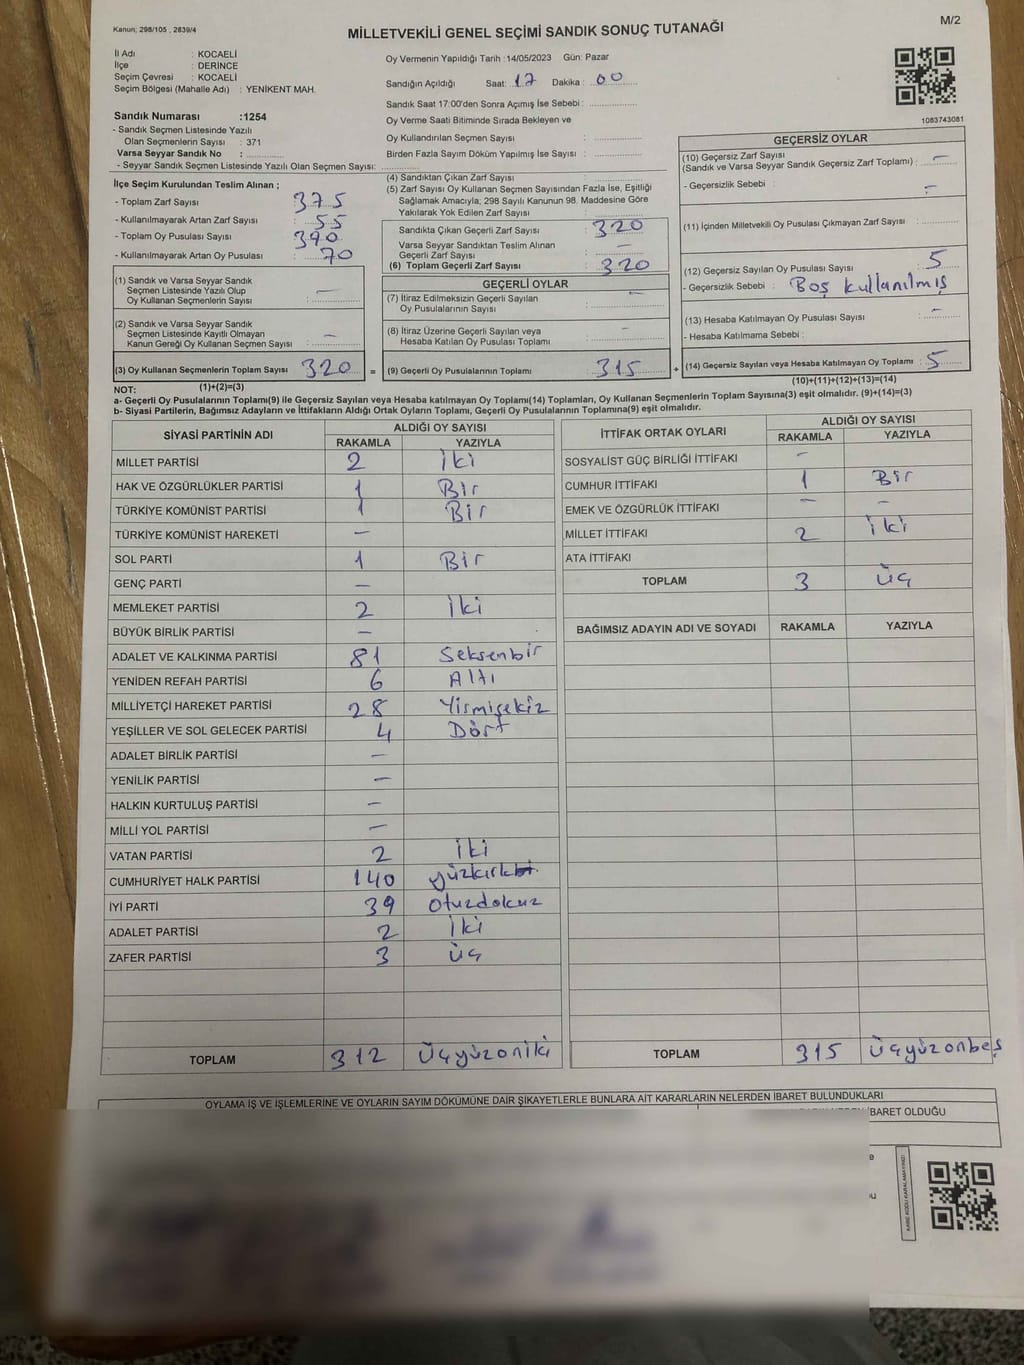 Kanun; 298/105 , 2839/4
M/2
MİLLETVEKİLİ GENEL SEÇİMİ SANDIK SONUÇ TUTANAĞI
İl Adı : KOCAELİ
İlçe : DERİNCE
Seçim Çevresi : KOCAELİ
Seçim Bölgesi (Mahalle Adı) : YENİKENT MAH.
Sandık Numarası :1254
- Sandık Seçmen Listesinde Yazılı
Olan Seçmenlerin Sayısı : 371
Varsa Seyyar Sandık No :
- Seyyar Sandık Seçmen Listesinde Yazılı Olan Seçmen Sayısı:
Oy Vermenin Yapıldığı Tarih :14/05/2023 Gün: Pazar
Sandığın Açıldığı Saat: 17 Dakika : 00
Sandık Saat 17:00'den Sonra Açımış İse Sebebi :
Oy Verme Saati Bitiminde Sırada Bekleyen ve
Oy Kullandırılan Seçmen Sayısı :
Birden Fazla Sayım Döküm Yapılmış İse Sayısı :
1083743081
İlçe Seçim Kurulundan Teslim Alınan ;
- Toplam Zarf Sayısı : 375
- Kullanılmayarak Artan Zarf Sayısı : 55
- Toplam Oy Pusulası Sayısı : 390
- Kullanılmayarak Artan Oy Pusulası : 70
(1) Sandık ve Varsa Seyyar Sandık
Seçmen Listesinde Yazılı Olup
Oy Kullanan Seçmenlerin Sayısı : —
(2) Sandık ve Varsa Seyyar Sandık
Seçmen Listesinde Kayıtlı Olmayan
Kanun Gereği Oy Kullanan Seçmen Sayısı : —
(3) Oy Kullanan Seçmenlerin Toplam Sayısı : 320 =
(1)+(2)=(3)
(4) Sandıktan Çıkan Zarf Sayısı :
(5) Zarf Sayısı Oy Kullanan Seçmen Sayısından Fazla İse, Eşitliği
Sağlamak Amacıyla; 298 Sayılı Kanunun 98. Maddesine Göre
Yakılarak Yok Edilen Zarf Sayısı :
Sandıkta Çıkan Geçerli Zarf Sayısı : 320
Varsa Seyyar Sandıktan Teslim Alınan
Geçerli Zarf Sayısı : —
(6) Toplam Geçerli Zarf Sayısı : 320
GEÇERLİ OYLAR
(7) İtiraz Edilmeksizin Geçerli Sayılan
Oy Pusulalarının Sayısı : —
(8) İtiraz Üzerine Geçerli Sayılan veya
Hesaba Katılan Oy Pusulası Toplamı : —
(9) Geçerli Oy Pusulalarının Toplamı : 315 +
GEÇERSİZ OYLAR
(10) Geçersiz Zarf Sayısı
(Sandık ve Varsa Seyyar Sandık Geçersiz Zarf Toplamı) : —
- Geçersizlik Sebebi : —
(11) İçinden Milletvekili Oy Pusulası Çıkmayan Zarf Sayısı :
(12) Geçersiz Sayılan Oy Pusulası Sayısı : 5
- Geçersizlik Sebebi : Boş kullanılmış
(13) Hesaba Katılmayan Oy Pusulası Sayısı : —
- Hesaba Katılmama Sebebi :
(14) Geçersiz Sayılan veya Hesaba Katılmayan Oy Toplamı : 5
(10)+(11)+(12)+(13)=(14)
NOT:
a- Geçerli Oy Pusulalarının Toplamı(9) ile Geçersiz Sayılan veya Hesaba katılmayan Oy Toplamı(14) Toplamları, Oy Kullanan Seçmenlerin Toplam Sayısına(3) eşit olmalıdır. (9)+(14)=(3)
b- Siyasi Partilerin, Bağımsız Adayların ve İttifakların Aldığı Ortak Oyların Toplamı, Geçerli Oy Pusulalarının Toplamına(9) eşit olmalıdır.
SİYASİ PARTİNİN ADI ALDIĞI OY SAYISI
RAKAMLA YAZIYLA
MİLLET PARTİSİ 2 iki
HAK VE ÖZGÜRLÜKLER PARTİSİ 1 Bir
TÜRKİYE KOMÜNİST PARTİSİ 1 Bir
TÜRKİYE KOMÜNİST HAREKETİ —
SOL PARTİ 1 Bir
GENÇ PARTİ —
MEMLEKET PARTİSİ 2 iki
BÜYÜK BİRLİK PARTİSİ —
ADALET VE KALKINMA PARTİSİ 81 Seksenbir
YENİDEN REFAH PARTİSİ 6 Altı
MİLLİYETÇİ HAREKET PARTİSİ 28 Yirmisekiz
YEŞİLLER VE SOL GELECEK PARTİSİ 4 Dört
ADALET BİRLİK PARTİSİ —
YENİLİK PARTİSİ —
HALKIN KURTULUŞ PARTİSİ —
MİLLİ YOL PARTİSİ —
VATAN PARTİSİ 2 iki
CUMHURİYET HALK PARTİSİ 140 yüzkırk
İYİ PARTİ 39 otuzdokuz
ADALET PARTİSİ 2 iki
ZAFER PARTİSİ 3 üç
TOPLAM 312 Üçyüzoniki
İTTİFAK ORTAK OYLARI ALDIĞI OY SAYISI
RAKAMLA YAZIYLA
SOSYALİST GÜÇ BİRLİĞİ İTTİFAKI —
CUMHUR İTTİFAKI 1 Bir
EMEK VE ÖZGÜRLÜK İTTİFAKI — —
MİLLET İTTİFAKI 2 iki
ATA İTTİFAKI
TOPLAM 3 üç
BAĞIMSIZ ADAYIN ADI VE SOYADI RAKAMLA YAZIYLA
TOPLAM 315 üçyüzonbeş
OYLAMA İŞ VE İŞLEMLERİNE VE OYLARIN SAYIM DÖKÜMÜNE DAİR ŞİKAYETLERLE BUNLARA AİT KARARLARIN NELERDEN İBARET BULUNDUKLARI
İBARET OLDUĞU